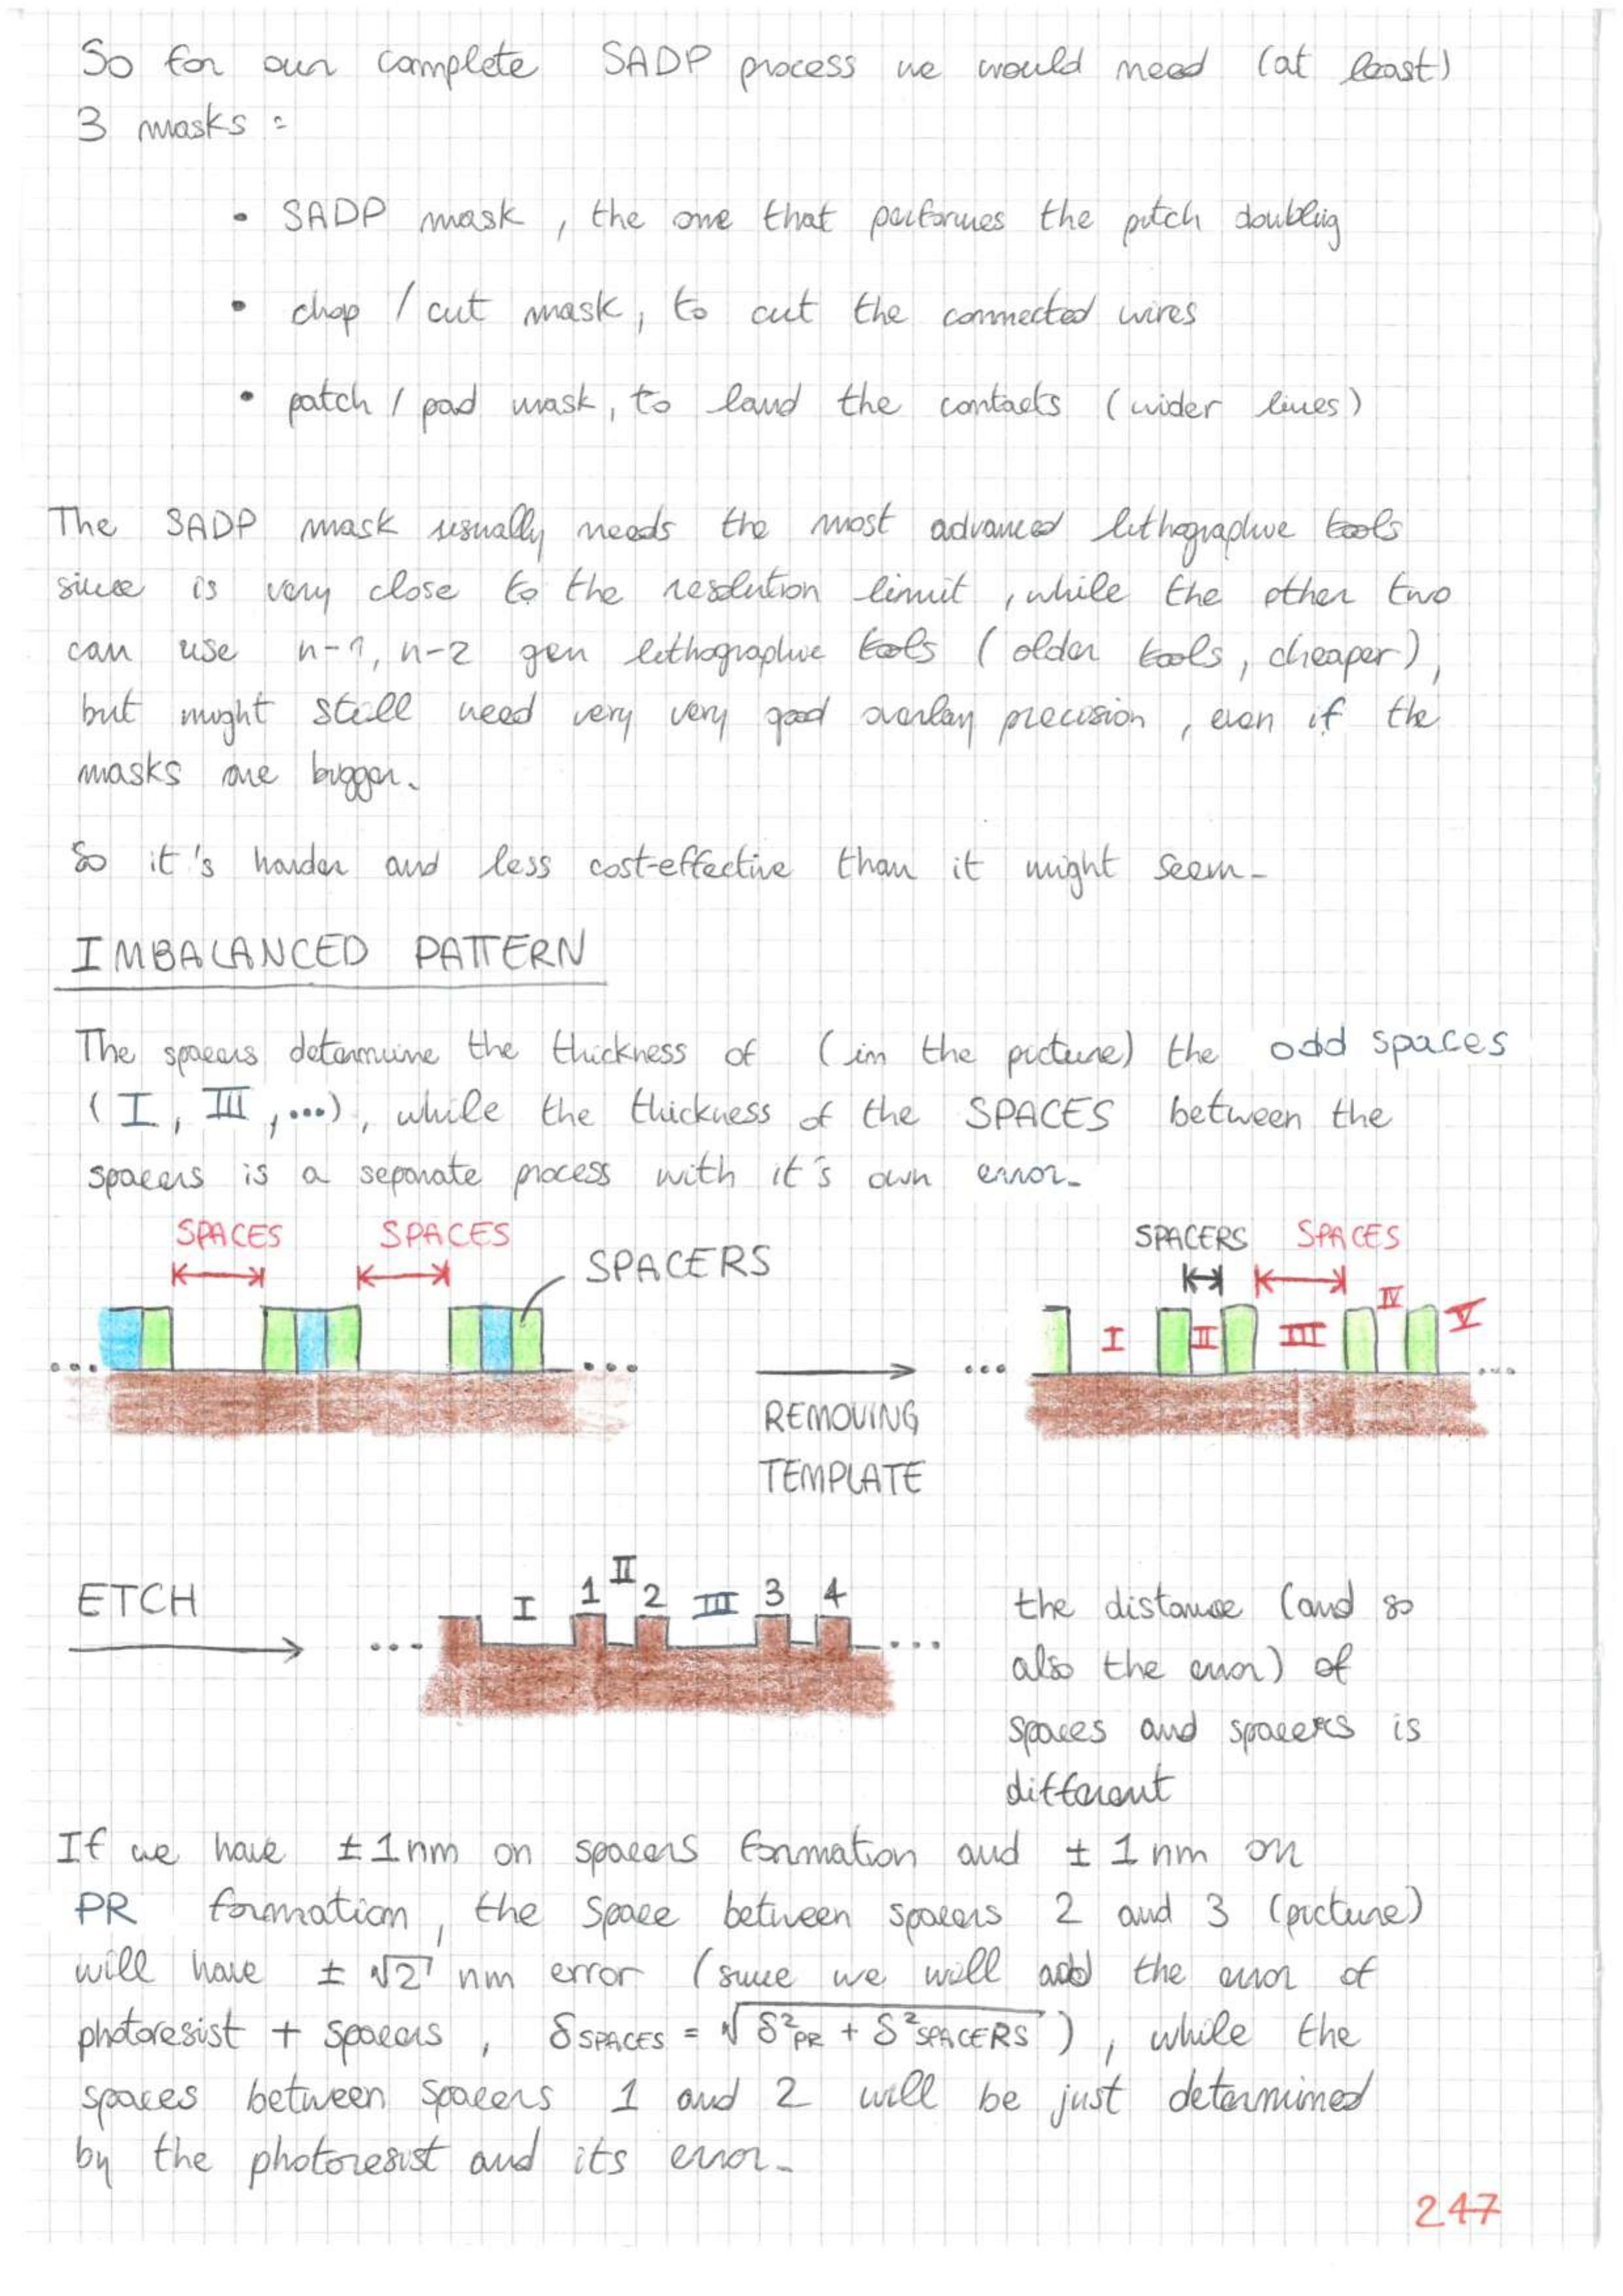 So for our complete SADP process we would need (at least)
3 masks :
• SADP mask , the one that performes the pitch doubling
• chop / cut mask, to cut the connected wires
• patch / pad mask, to land the contacts (wider lines)
The SADP mask usually needs the most advanced lithographic tools
since is very close to the resolution limit , while the other two
can use n-1, n-2 gen lithographic tools ( older tools, cheaper),
but might still need very very good overlay precision , even if the
masks are bigger.
So it's harder and less cost-effective than it might seem.
IMBALANCED PATTERN
The spacers determine the thickness of (in the picture) the odd spaces
( I, III , ...), while the thickness of the SPACES between the
spacers is a separate process with it's own error.
SPACES SPACES SPACERS
SPACERS SPACES
I II III IV V
... ... ... ...
REMOVING
TEMPLATE
ETCH
... I 1 II 2 III 3 4 ...
the distance (and so
also the error) of
spaces and spacers is
different
If we have ± 1 nm on spacers formation and ± 1 nm on
PR formation, the space between spacers 2 and 3 (picture)
will have ± √2 nm error (since we will add the error of
photoresist + spacers , δSPACES = √δ²PR + δ²SPACERS ) , while the
spaces between spacers 1 and 2 will be just determined
by the photoresist and its error.
247